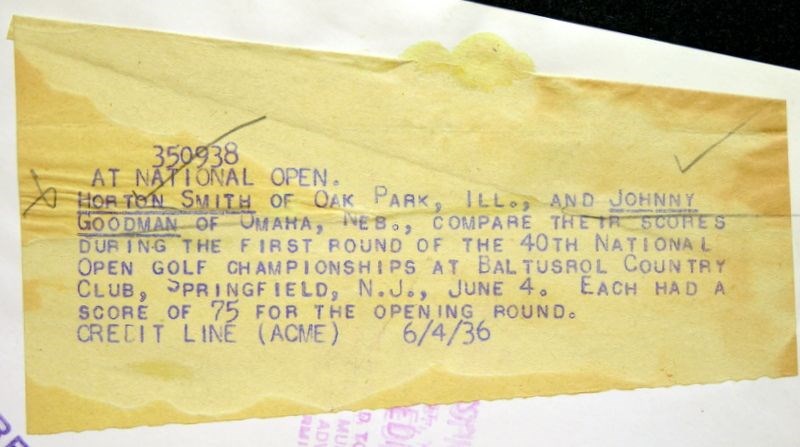 350938
AT NATIONAL OPEN.
HORTON SMITH OF OAK PARK, ILL., AND JOHNNY
GOODMAN OF OMAHA, NEB., COMPARE THEIR SCORES
DURING THE FIRST ROUND OF THE 40TH NATIONAL
OPEN GOLF CHAMPIONSHIPS AT BALTUSROL COUNTRY
CLUB, SPRINGFIELD, N.J., JUNE 4. EACH HAD A
SCORE OF 75 FOR THE OPENING ROUND.
CREDIT LINE (ACME) 6/4/36